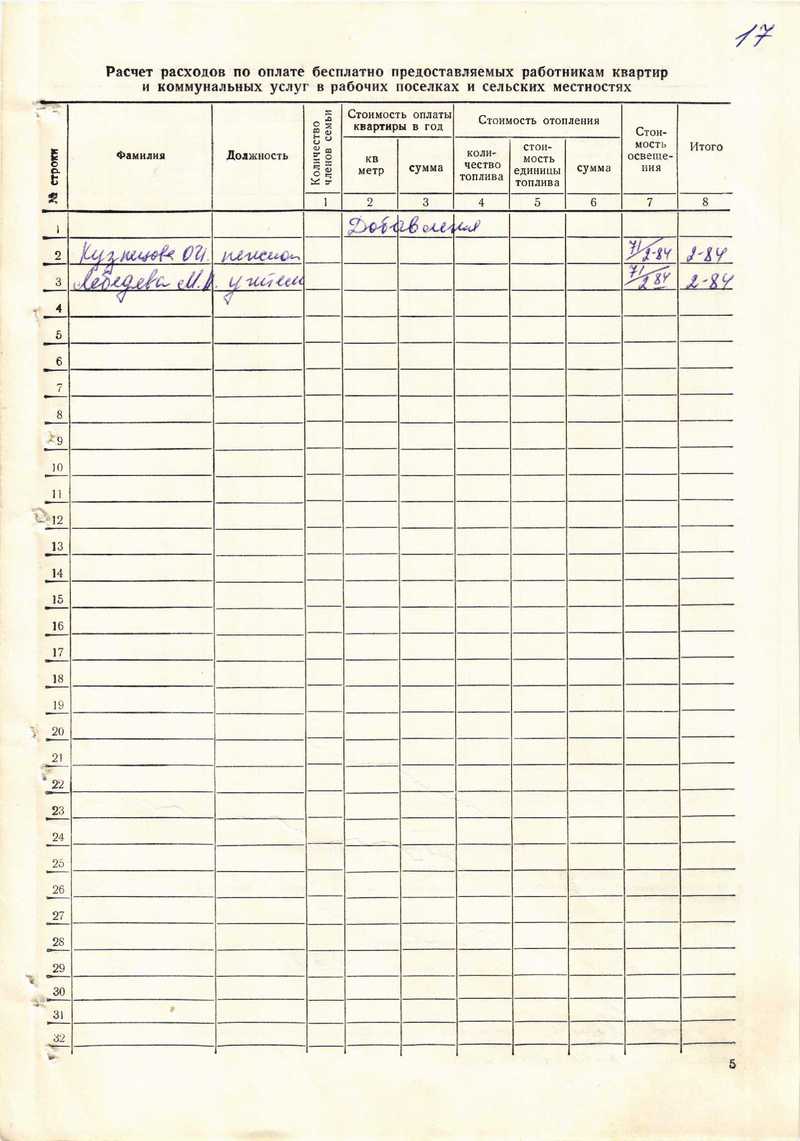 17
Расчет расходов по оплате бесплатно предоставляемых работникам квартир
и коммунальных услуг в рабочих поселках и сельских местностях
№ строки
Фамилия
Должность
Количество членов семьи
Стоимость оплаты квартиры в год
кв метр
сумма
Стоимость отопления
коли-
чество
топлива
стои-
мость
единицы
топлива
сумма
Стои-
мость
освеще-
ния
Итого
1 2 3 4 5 6 7 8
1 Добавления
2 Кузнецова О.И. пенсион 71/2-84 2-84
3 Лебедева М. учител 71/2 84 2-84
4
5
6
7
8
9
10
11
12
13
14
15
16
17
18
19
20
21
22
23
24
25
26
27
28
29
30
31
32
5